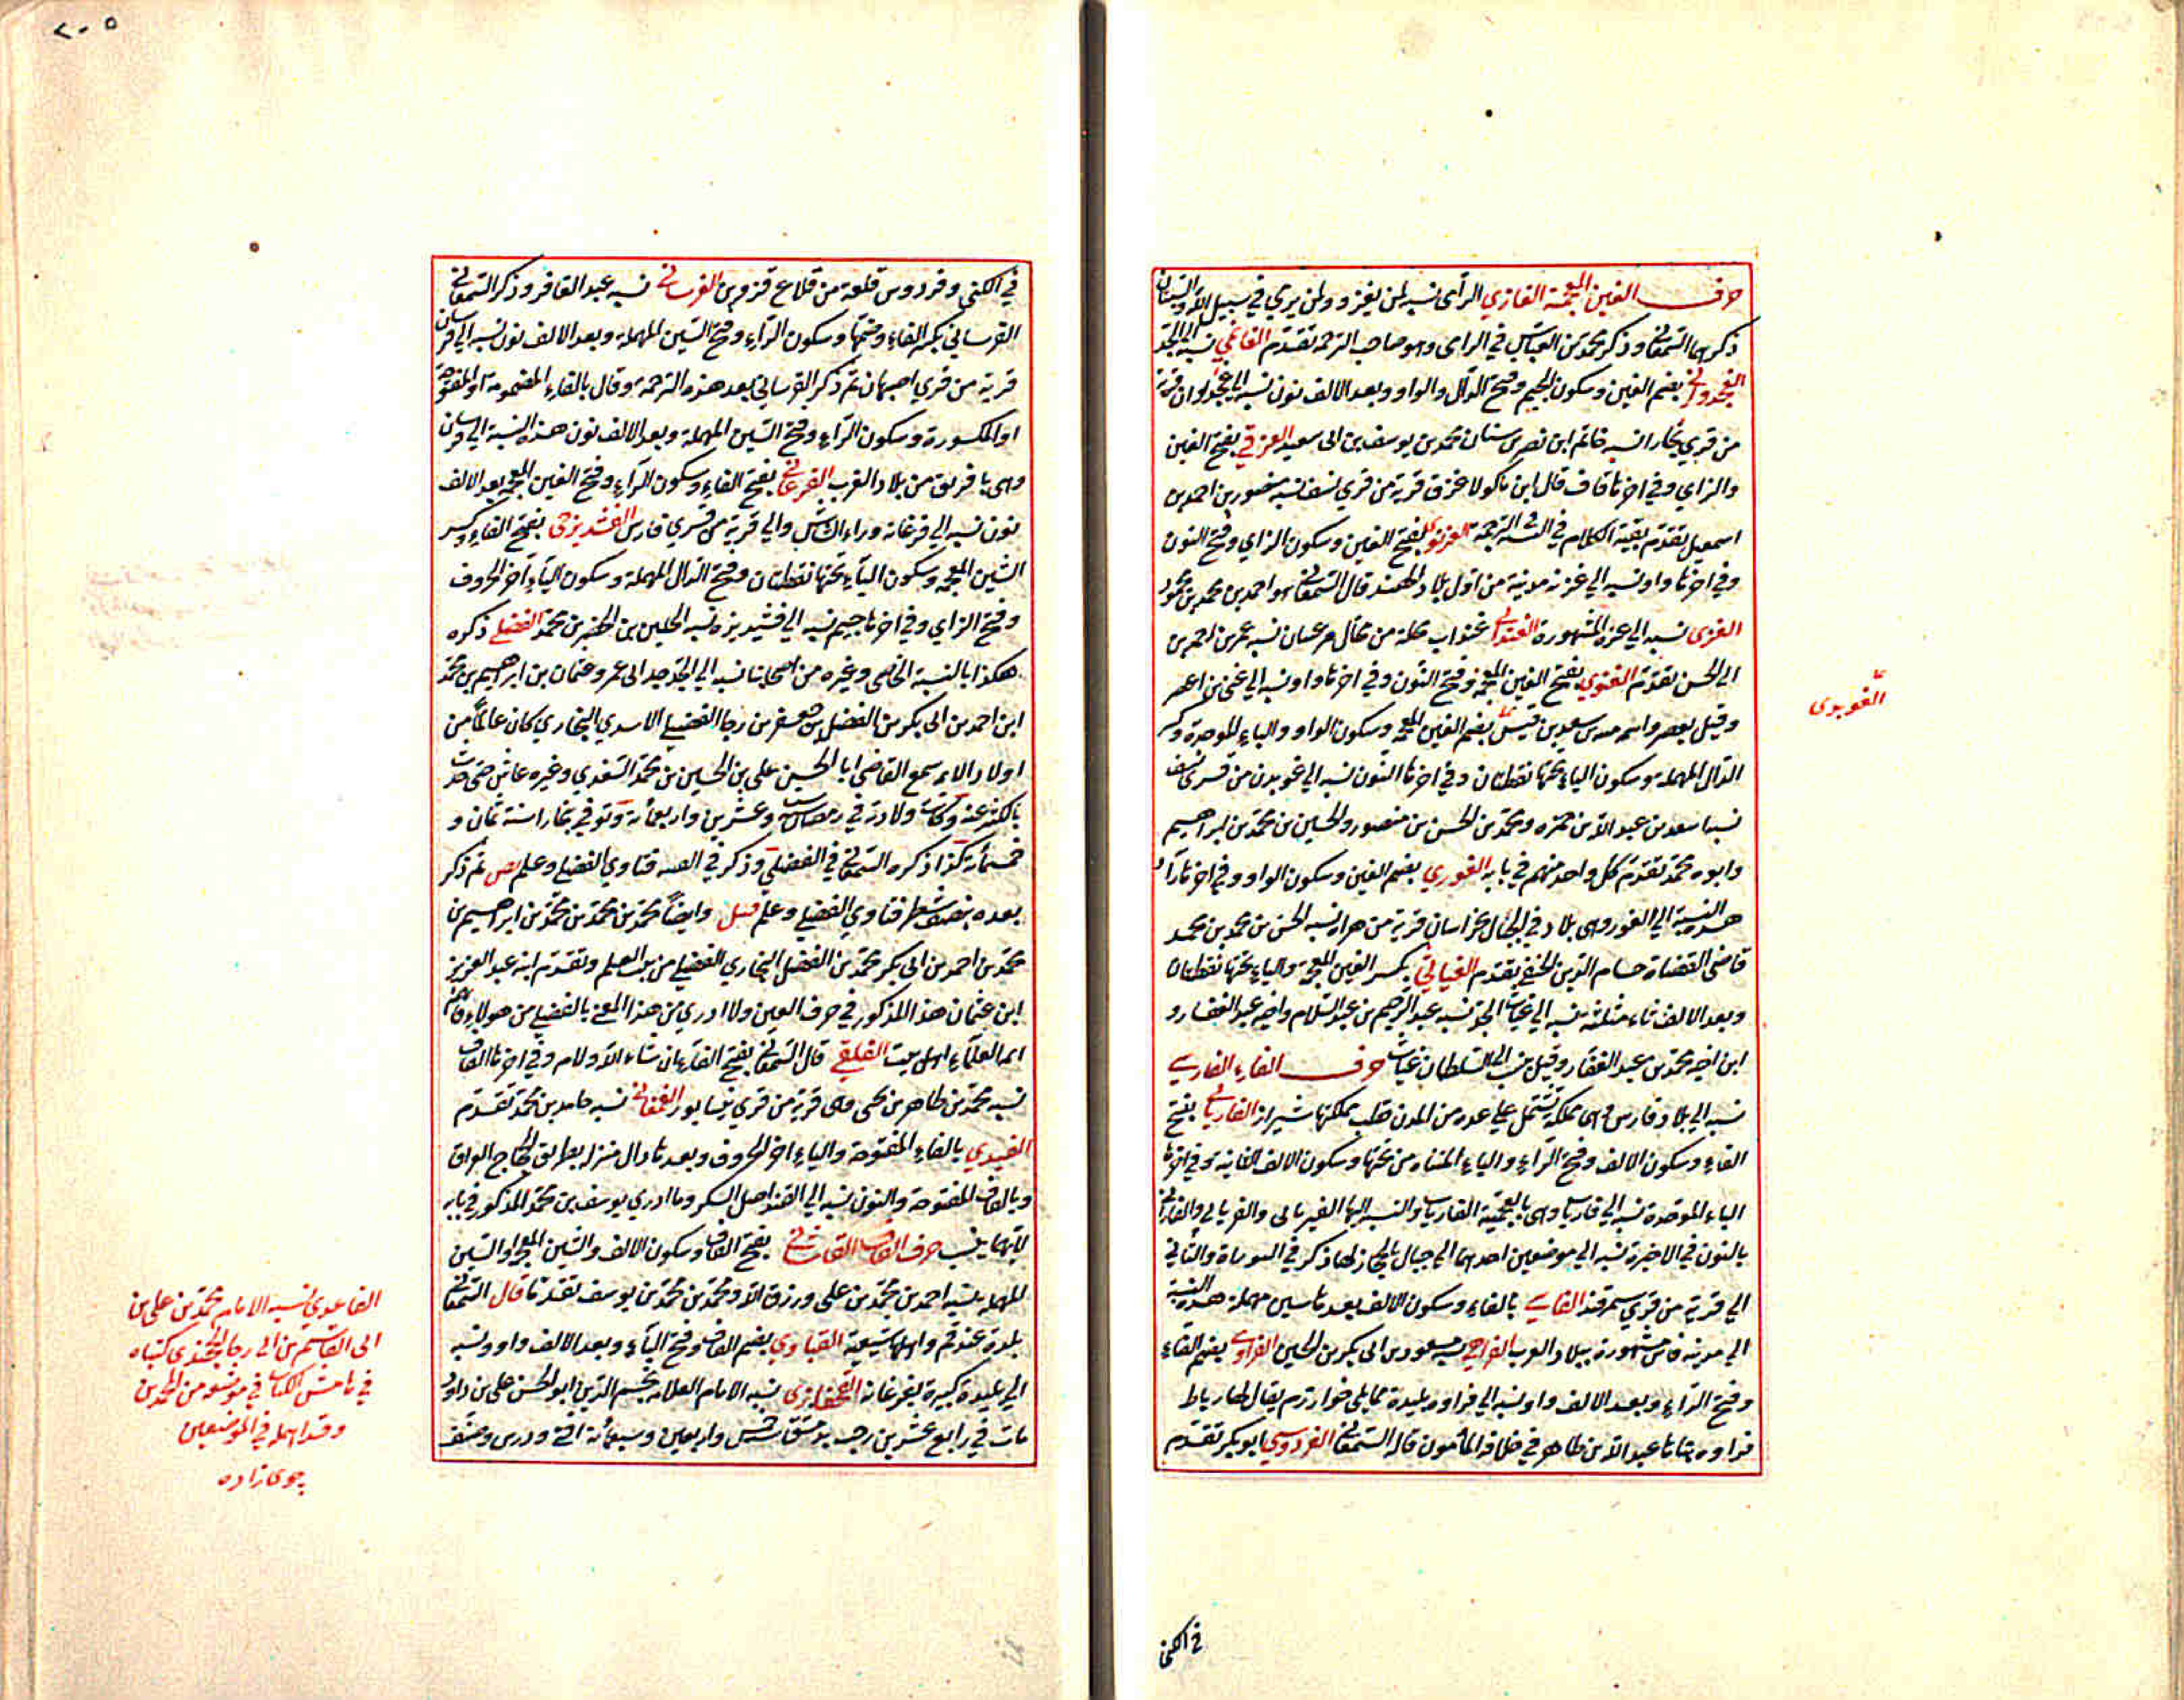 حرف الغين المعجمة الغازي الرأى نسبة لمن يغزو ولمن يرمي في سبيل الله والنسبتان
ذكرهما السمعاني وذكر محمد بن العباس في الراى وهو صاحب الترجمة تقدم نسبة الى الجد
الغجدواني بضم الغين وسكون الجيم وفتح الدال والواو وبعد الالف نون نسبة الى غجدوان قرية
من قري بخارا نسبة محمد بن يوسف بن ابى سعيد الغزقي بفتح الغين
والزاي وفي اخرها قاف قال ابن ماكولا غزق قرية من قري نسف نسبة منصور بن احمد بن
اسمعيل تقدم بقية الكلام في الترجمة الغزنوي بفتح الغين وسكون الزاي وفتح النون
وفي اخرها واو نسبة الي غزنة مدينة من اول بلاد الهند قال السمعاني هو احمد بن محمد بن محمود
الغزى نسبة الي غزة المشهورة نسبة عمر بن احمد بن
ابى الحسن تقدم الغنوي بفتح الغين المعجمة وفتح النون وفي اخرها واو نسبة الي غنى بن اعصر
وقيل يعصر واسمه بن سعد بن قيس بضم الغين المعجمة وسكون الواو والباء الموحدة وكسر
الدال المهملة وسكون الياء تحتها نقطتان وفي اخرها النون نسبة الي غوبدين من قري نسف
نسبة سعد بن عبد الله بن حمزه ومحمد بن الحسن بن منصور والحسين بن محمد بن ابراهيم
وابوه محمد تقدم كل واحد منهم في بابه الغوري بضم الغين وسكون الواو وفي اخرها راء
هذه النسبة الي الغور وهى بلاد في الجبال بخراسان قرية من هراة نسبة الحسن بن محمد بن محمد
قاضى القضاة حسام الدين الحنفي تقدم الغياثي بكسر الغين المعجمة والياء تحتها نقطتان
وبعد الالف ثاء مثلثة نسبة الي غياث الجد نسبة عبد الرحيم بن عبد السلام واخيه عبد الغفار و
ابن اخيه محمد بن عبد الغفار وقيل نسبة الى السلطان غياث حرف الفاء الفارسي
نسبة الي بلاد فارس وهى مملكة تشتمل علي عدة من المدن قلب مملكتها شيراز الفاريابي بفتح
الفاء وسكون الالف وفتح الراء والياء المثناه من تحتها وسكون الالف الثانية وفي اخرها
الباء الموحدة نسبة الي فارياب وهى بالعجمية الفارياب والنسبة اليها الفيريابى والفريابي والفاراني
بالنون في الاخيرة نسبة الي موضعين احدهما الى جبال بالحجاز لها ذكر في التوراة والثاني
الي قرية من قري سمرقند الفاسي بالفاء وسكون الالف بعدها سين مهملة هذه النسبة
الي مدينة فاس مشهورة ببلاد المغرب مسعود بن ابى بكر بن الحسين الفراوي بضم الفاء
وفتح الراء وبعد الالف واو نسبة الي فراوه بليدة مما يلى خوارزم يقال لها رباط
فراوه بناها عبد الله بن طاهر في خلافة المأمون قاله السمعاني الفردوسي ابو بكر تقدم
في الكنى
الغوبدى
٢٠٥
في الكنى وفردوس قلعة من قلاع قزوين الفرساني نسبة عبد الغافر وذكر السمعاني
الفرساني بكسر الفاء وضمها وسكون الراء وفتح السين المهملة وبعد الالف نون نسبة الي فرسان
قرية من قري اصبهان ثم ذكر الفرساني بعد هذه الترجمة وقال بالفاء المضمومة او المفتوحة
او المكسورة وسكون الراء وفتح السين المهملة وبعد الالف نون هذه النسبة الي فرسان
وهى بافريقة من بلاد المغرب الفرغاني بفتح الفاء وسكون الراء وفتح الغين المعجمة بعد الالف
نون نسبة الي فرغانة وراء الشاش والي قرية من قري فارس الفشيديزجى بفتح الفاء وكسر
الشين المعجمة وسكون الياء تحتها نقطتان وفتح الدال المهملة وسكون الياء آخر الحروف
وفتح الزاي وفي اخرها جيم نسبة الي فشيديزه نسبة الحسين بن الخضر بن محمد الفضلي ذكره
هكذا بالنسبة الخاصى وغيره من اصحابنا نسبة الي الجد جد ابى عمرو عثمان بن ابراهيم بن محمد
ابن احمد بن ابى بكر بن الفضل بن جعفر بن رجا الفضلي الاسدي البخاري كان عالماً من
اولاد الائمة سمع القاضى ابا الحسين على بن الحسين بن محمد السغدي وغيره عاش حتى حدث
بالكثير عنه وكانت ولادته في رمضان سنة وعشرين واربعمائة وتوفي ببخارا سنة ثمان و
خمسمائة كذا ذكره السمعاني في الفضلي وذكر في فتاوي الفضلي وعلم ص ثم ذكر
بعده فتاوي الفضلي وعلم وايضاً محمد بن محمد بن محمد بن ابراهيم بن
محمد بن احمد بن ابى بكر محمد بن الفضل البخاري الفضلي من بيت العلم وتقدم ابنه عبد العزيز
ابن عثمان هذا المذكور في حرف العين ولا ادري من هذا المعني بالفضلي من هولاء فانهم
ائمة العلماء اهل بيت الفلقي قال السمعاني بفتح الفاء ان شاء الله ولام وفي اخرها القاف
نسبة محمد بن طاهر بن يحيى وهى قرية من قري نيسابور نسبة حامد بن محمد تقدم
الفيدي بالفاء المفتوحة والياء اخر الحروف وبعدها دال منزلة بطريق حاج العراق
وبالقاف المفتوحة والنون نسبة الي القند اصل السكر وما ادري يوسف بن محمد المذكور في بابه
لايهما ينسب حرف القاف القاشاني بفتح القاف وسكون الالف والشين المعجمة او السين
المهملة نسبة احمد بن محمد بن على ورزق الله ومحمد بن محمد بن يوسف تقدمها قال السمعاني
بلدة عند قم واهلها شيعة القباوي بضم القاف وفتح الباء وبعد الالف واو نسبة
الي بليدة كبيرة بفرغانة القحفازى نسبة الامام العلامة نجم الدين ابو الحسن على بن داود
مات في رابع عشرين رجب بدمشق سنة خمس واربعين وسبعمائة افتى ودرس وصنف
القاعدي نسبة الامام محمد بن على بن
ابى القاسم بن ابى رجا الخجندى كتباه
في هامش الكتاب في موضعه من المحمدين
وقد اهمله في الموضعين
چوى زاده